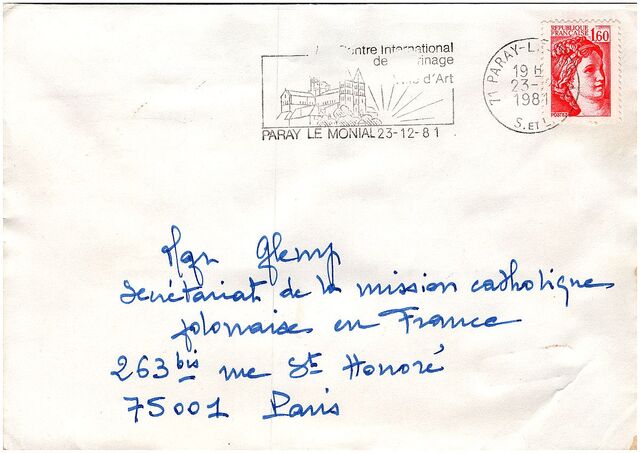 Centre International
de
d'Art
PARAY LE MONIAL 23-12-81
71 PARAY-L
19 H
23-
1981
S. ET L
REPUBLIQUE
FRANÇAISE
1,60
POSTES
Mgr Glemp
Secrétariat de la mission catholique
polonaise en France
263 bis rue St Honoré
75001 Paris